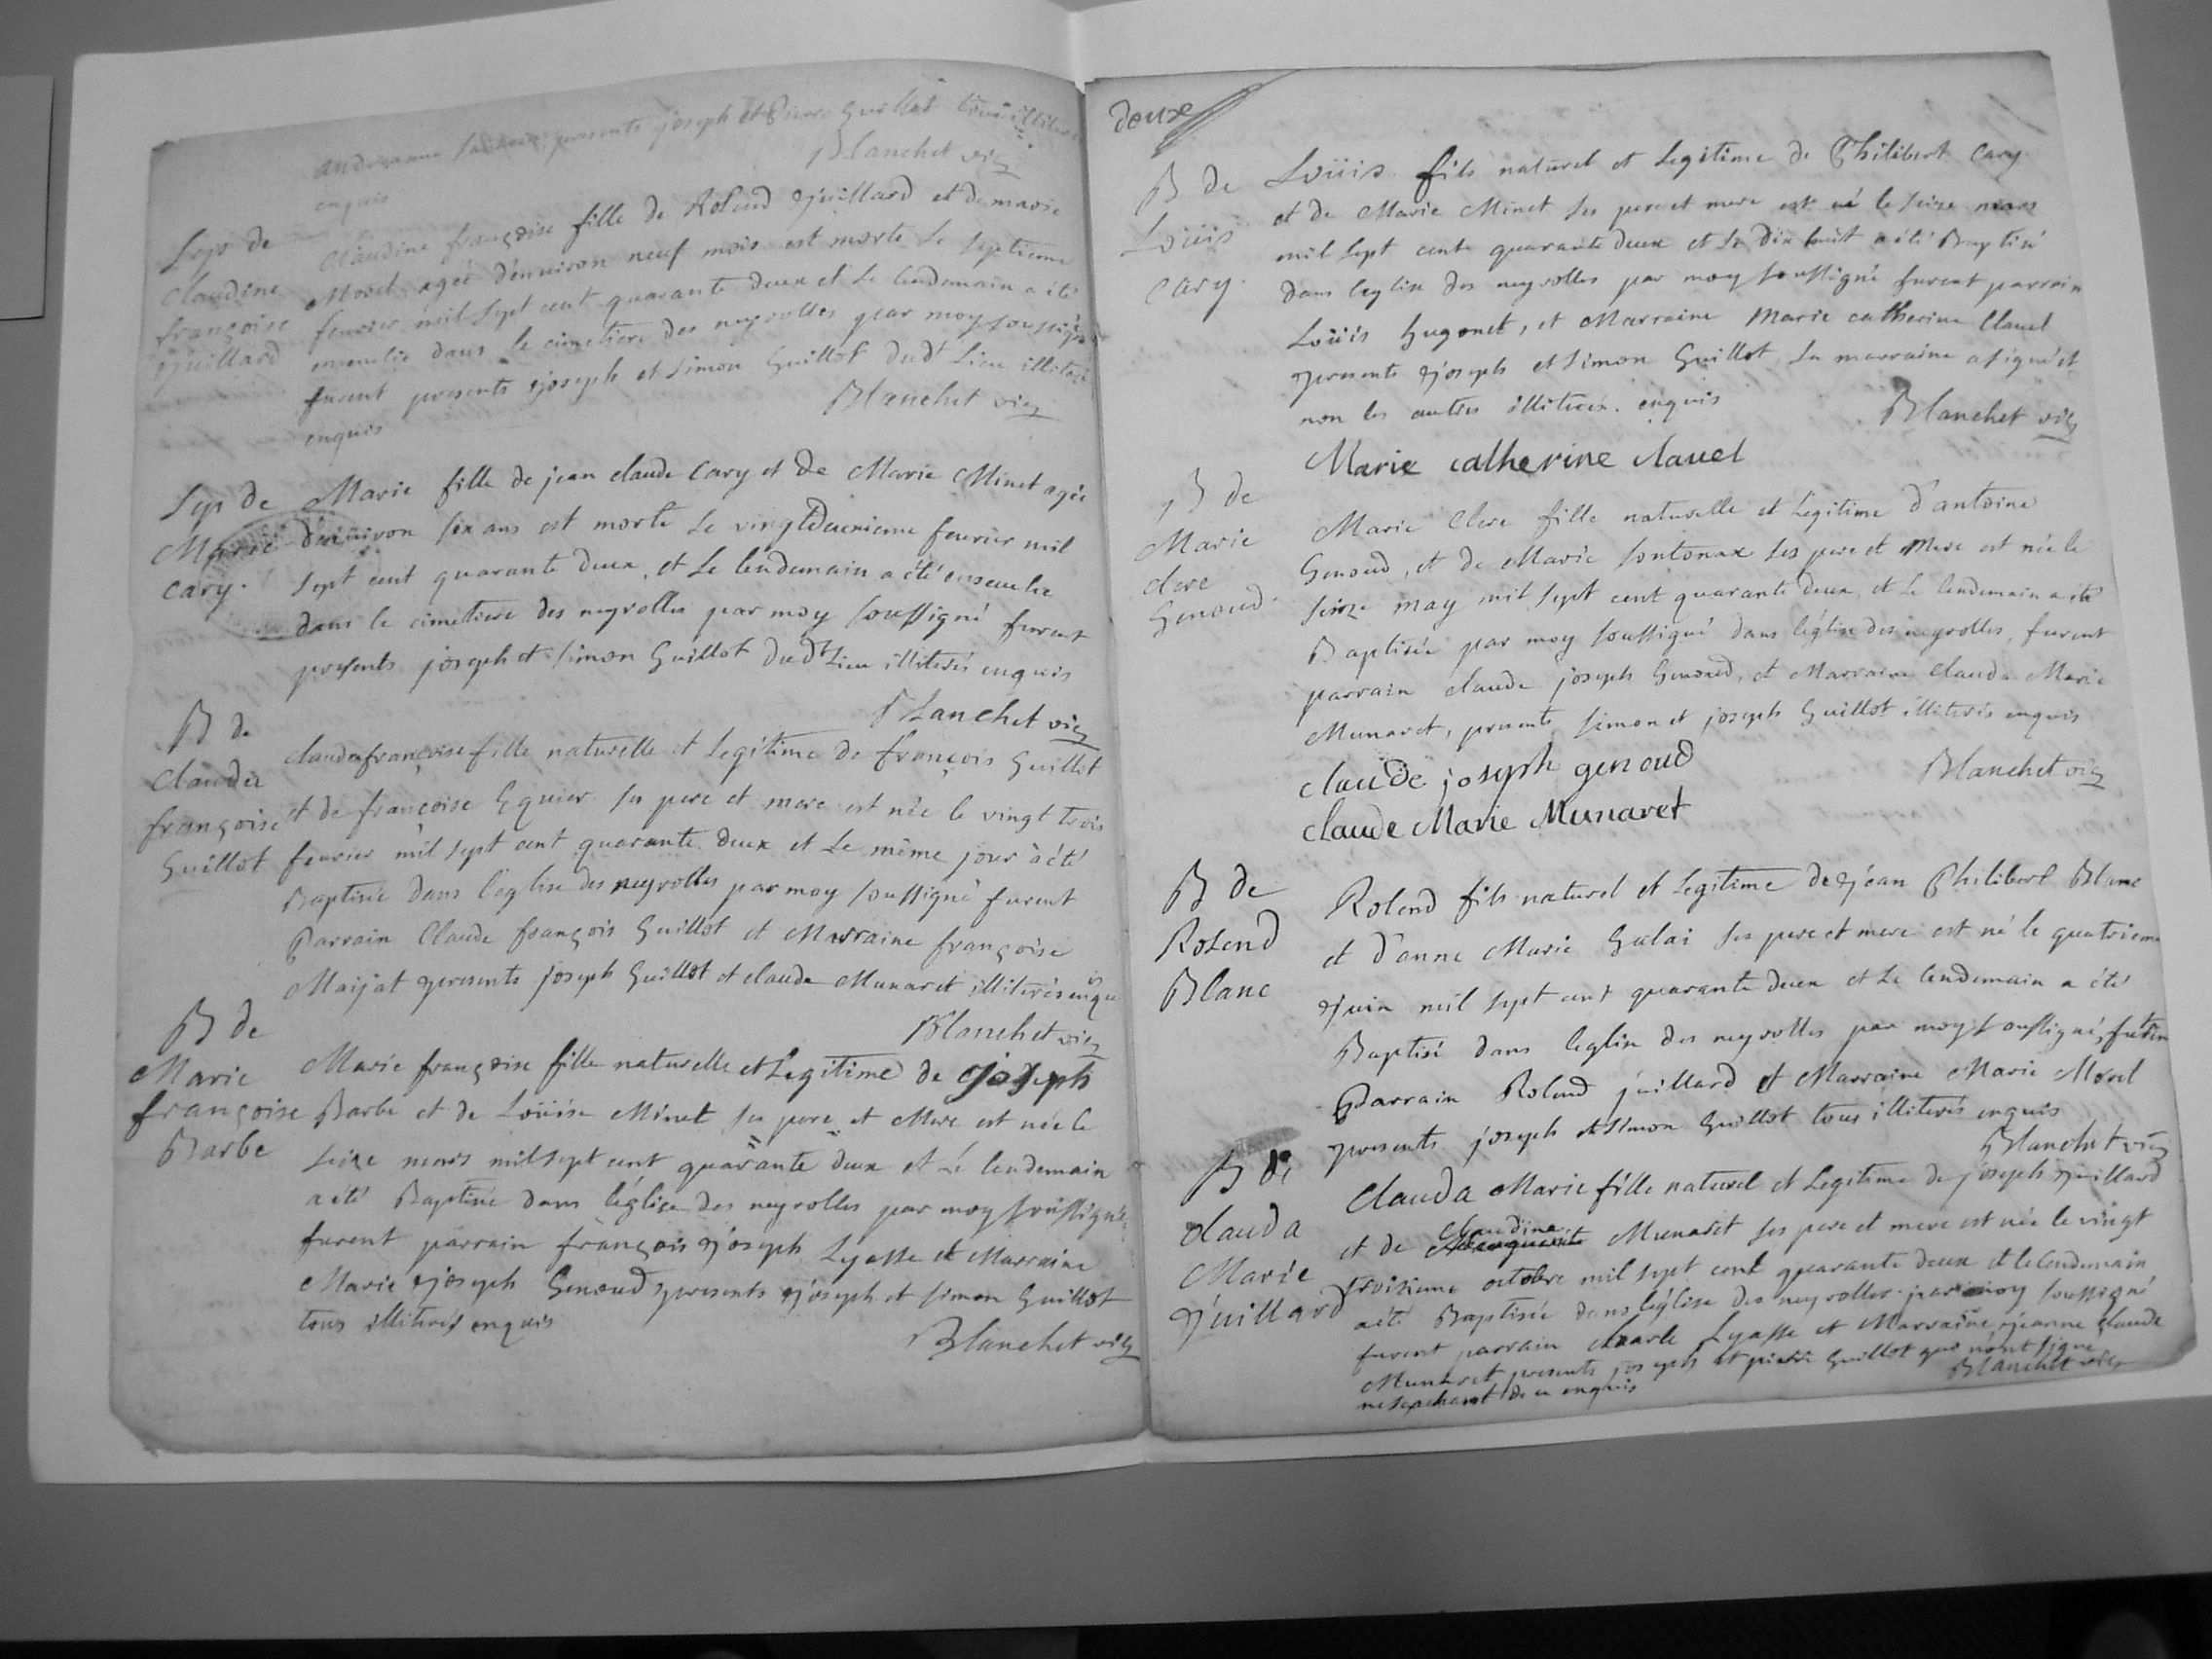 presents joseph et Pierre Guillot tous illiterés
enquis
Blanchet vic
Sep de
Claudine
françoise
Juillard
Claudine françoise fille de Roland Juillard et de marie
Morel agée d'enuiron neuf mois est morte Le septieme
feurier mil sept cent quarante deux et Le lendemain a été
enseuelie dans le cimetiere des neyrolles par moy soussigné
furent presents joseph et simon Guillot dudt Lieu illiterés
enquis
Blanchet vic
Sep de
Marie
Cary.
Marie fille de jean claude Cary et De Marie Minet agée
d'enuiron six ans est morte Le vingtdeuxieme feurier mil
sept cent quarante deux, et Le lendemain a été enseuelie
dans le cimettiere des neyrolles par moy soussigné furent
presents joseph et simon Guillot dudt Lieu illiterés enquis
Blanchet vic
B de
Clauda
françoise
Guillot
claudafrançoise fille naturelle et Legitime de françois Guillot
et de françoise Equier ses pere et mere est née le vingt trois
feurier mil sept cent quarante deux et Le même jour a été
Baptisée dans l'eglise des neyrolles par moy soussigné furent
Parrain Claude françois Guillot et Marraine françoise
Maijat presents joseph Guillot et claude Munaret illiterés enquis
Blanchet vic
B de
Marie
françoise
Barbe
Marie françoise fille naturelle et Legitime de Joseph
Barbe et de Loüise Minet ses pere et Mere est née le
seize mars mil sept cent quarante deux et Le lendemain
a été Baptisée dans l'église des neyrolles par moy soussigné
furent parrain françois Joseph Lyasse et Marraine
Marie Joseph Genoud presents Joseph et simon Guillot
tous illiterés enquis
Blanchet vic
deux
B de
Loüis
Cary.
Loüis fils naturel et Legitime de Philibert Cary
et de Marie Minet ses pere et mere est né le seize mars
mil sept cents quarante deux et Le dix huit a été Baptisé
dans leglise des neyrolles par moy soussigné furent parrain
Loüis Hugonet, et Marraine Marie catherine Clauel
presents Joseph et simon Guillot La marraine a signé et
non les autres illiterés. enquis
Blanchet vic
Marie catherine clauel
B de
Marie
clere
Genoud.
Marie Clere fille naturelle et Legitime d'antoine
Genoud, et de Marie sontonax ses pere et Mere est née le
seize may mil sept cent quarante deux, et Le lendemain a été
Baptisée par moy soussigné dans l'église des neyrolles, furent
parrain claude joseph Genoud, et Marraine Claude Marie
Munaret, presents simon et joseph Guillot illiterés enquis
Blanchet vic
claude joseph genoud
claude Marie Munaret
B de
Rolend
Blanc
Rolend fils naturel et Legitime de Jean Philibert Blanc
et d'anne Marie Galai ses pere et mere est né le quatrieme
Juin mil sept cent quarante deux et Le lendemain a été
Baptisé dans leglise des neyrolles par moy soussigné, furent
Parrain Rolend juillard et Marraine Marie Morel
presents joseph et simon Guillot tous illiterés enquis
Blanchet vic
B de
clauda
Marie
Juillard
Clauda Marie fille naturel et Legitime de joseph Juillard
Claudine
et de Munaret ses pere et mere est née le vingt
troisieme octobre mil sept cent quarante deux et le lendemain
a été Baptisée dans léglise des neyrolles par moy soussigné
furent parrain charle Lyasse et Marraine Jeanne Claude
Munaret presents joseph et pierre Guillot qui n'ont signé
ne sachant de ce enquis
Blanchet vic